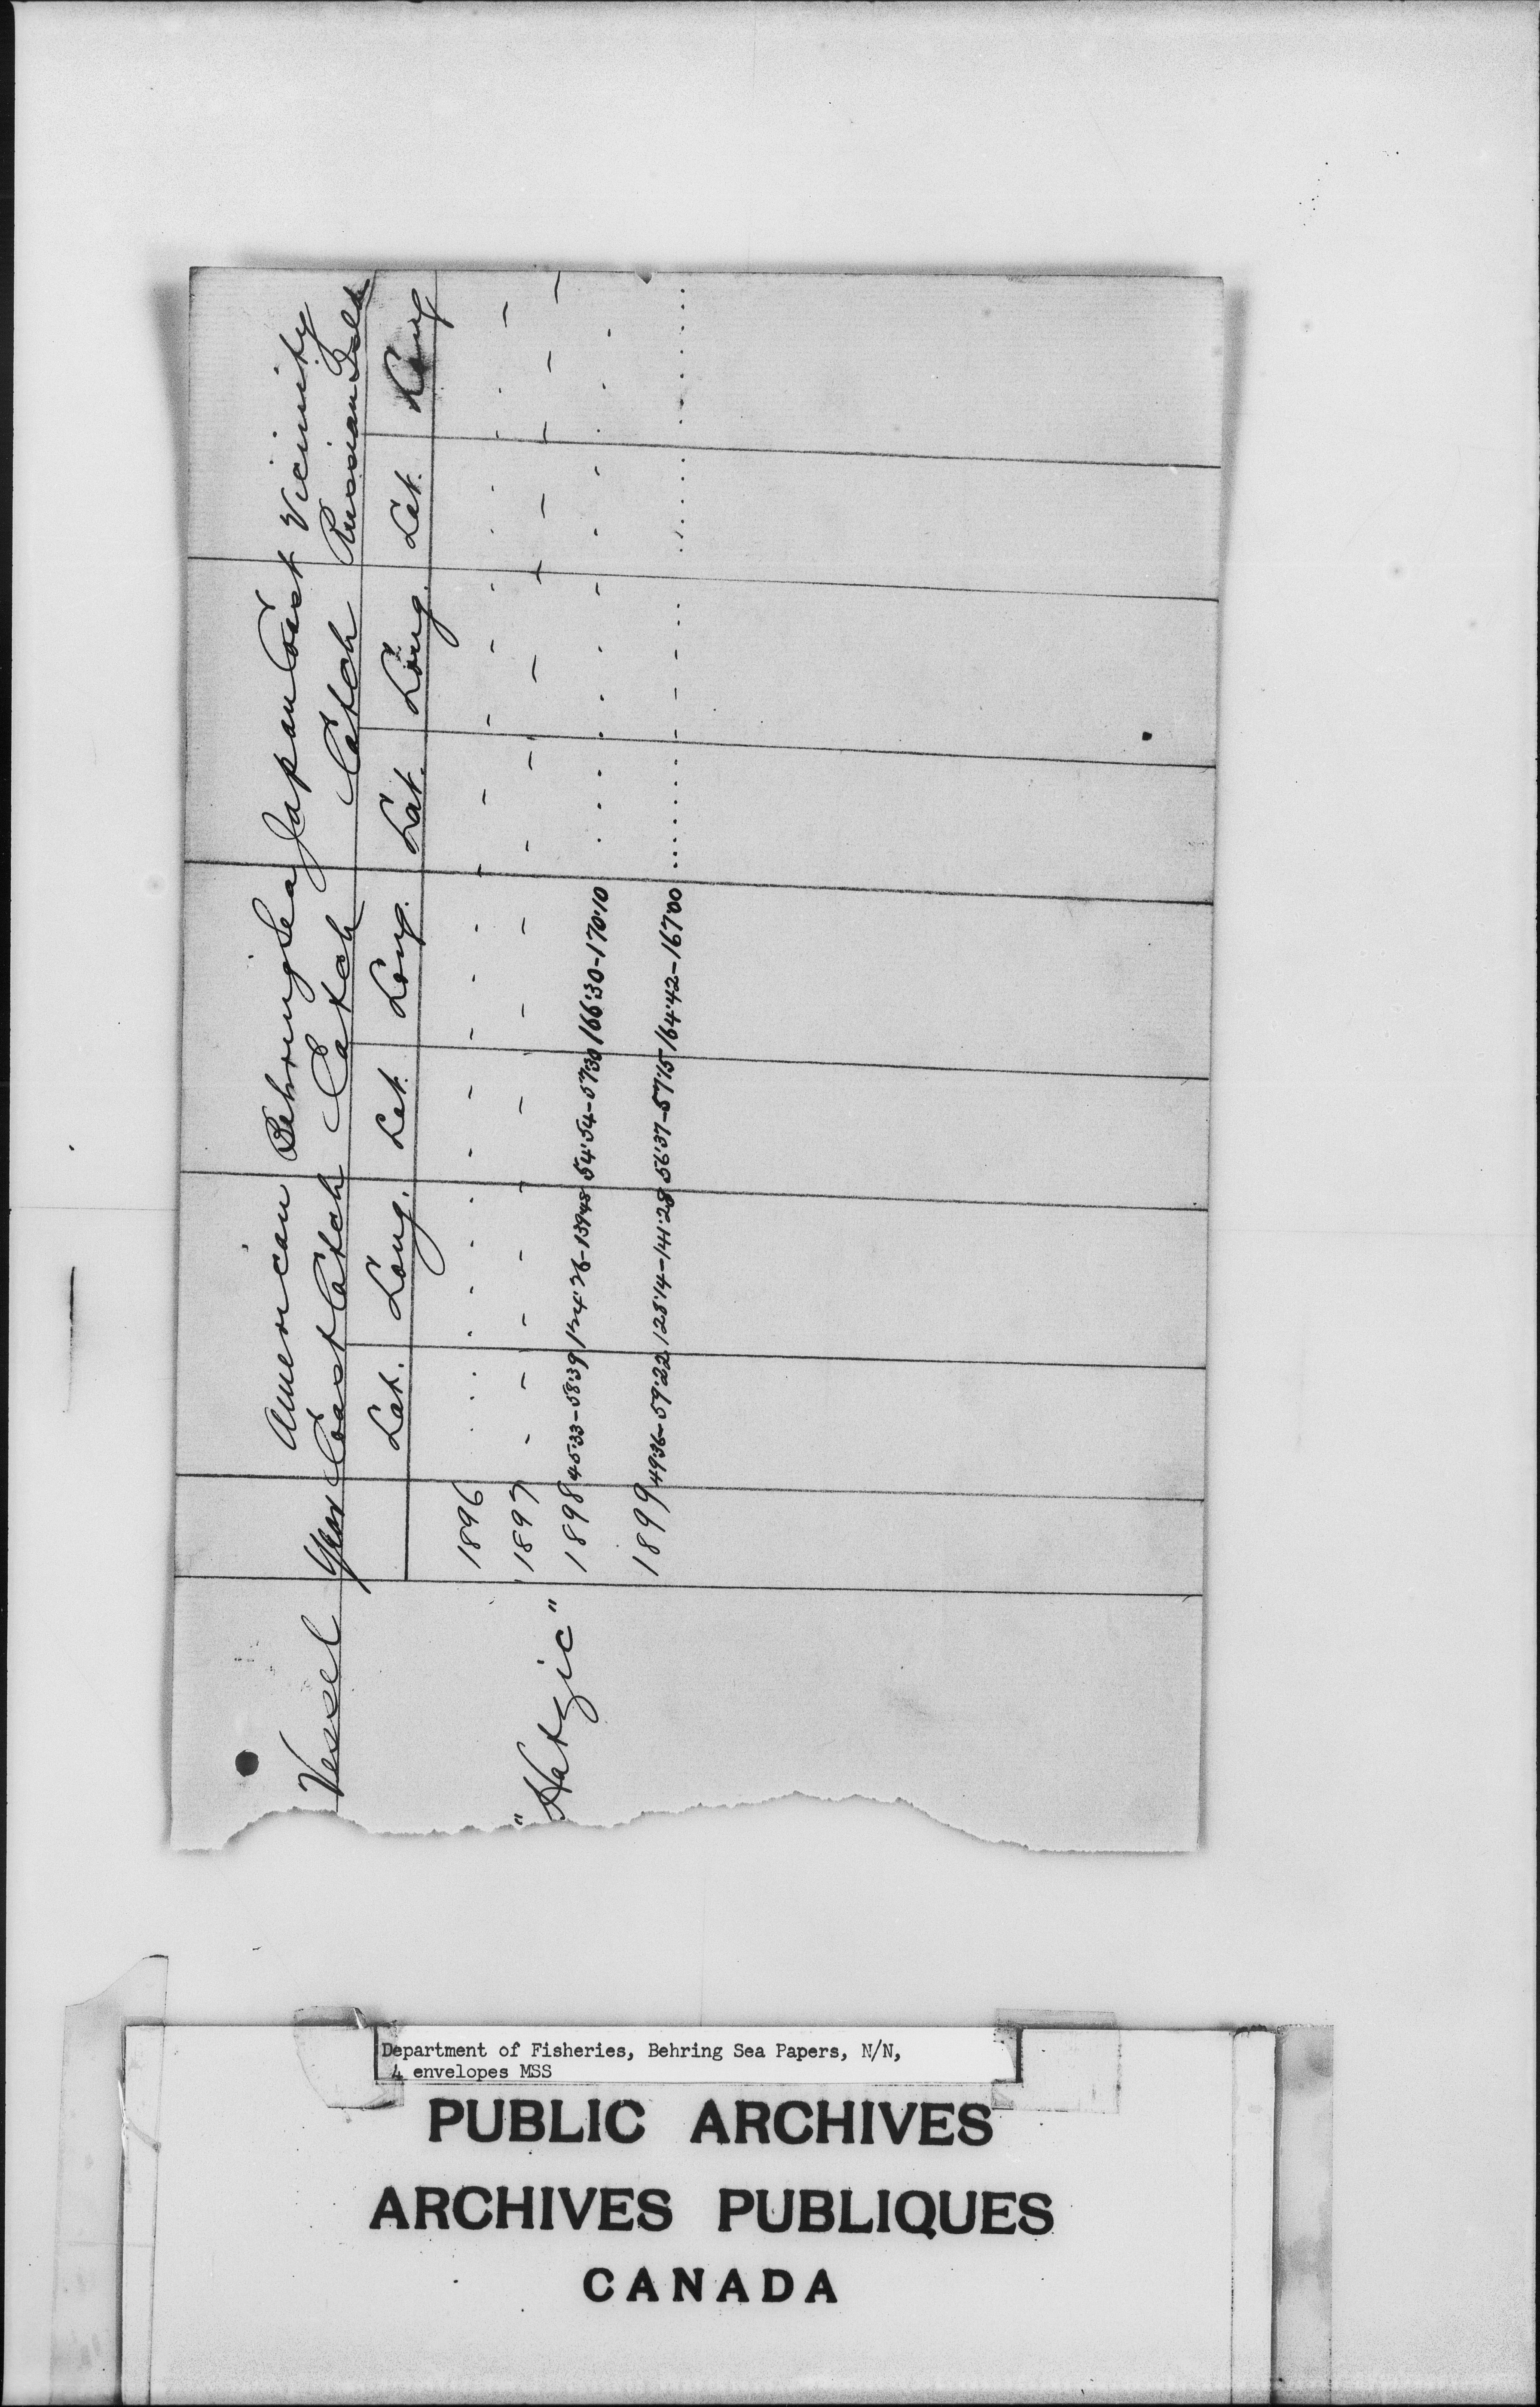 Vessel Year American Coast Catch Behring Sea Catch Japan Coast Catch Vicinity Russian Isld
Lat. Long. Lat. Long. Lat. Long. Lat. Long
"Hatzic"
1896
1897
1898 45·33–58·39 124·26–139·48 54·54–57·30 166·30–170·10
1899 49·36–59·22 128·14–141·28 56·37–57·15 164·42–167·00
Department of Fisheries, Behring Sea Papers, N/N,
4 envelopes MSS
PUBLIC ARCHIVES
ARCHIVES PUBLIQUES
CANADA